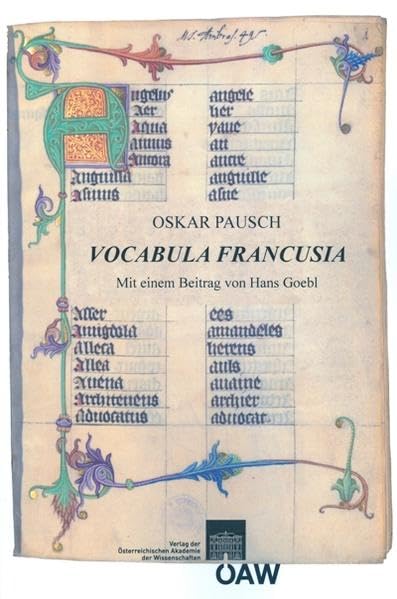 Ms. Ambras. 42.
Angelus angele
Aer her
Aqua yaue
Annus an
Aurora aucre
Anguilla anguille
Asinus asne
OSKAR PAUSCH
VOCABULA FRANCUSIA
Mit einem Beitrag von Hans Goebl
Asser ees
Amigdola amandeles
Alleca herens
Allea auls
Auena auaine
Architenens archier
aduocatus aduocat
Verlag der
Österreichischen Akademie
der Wissenschaften
ÖAW